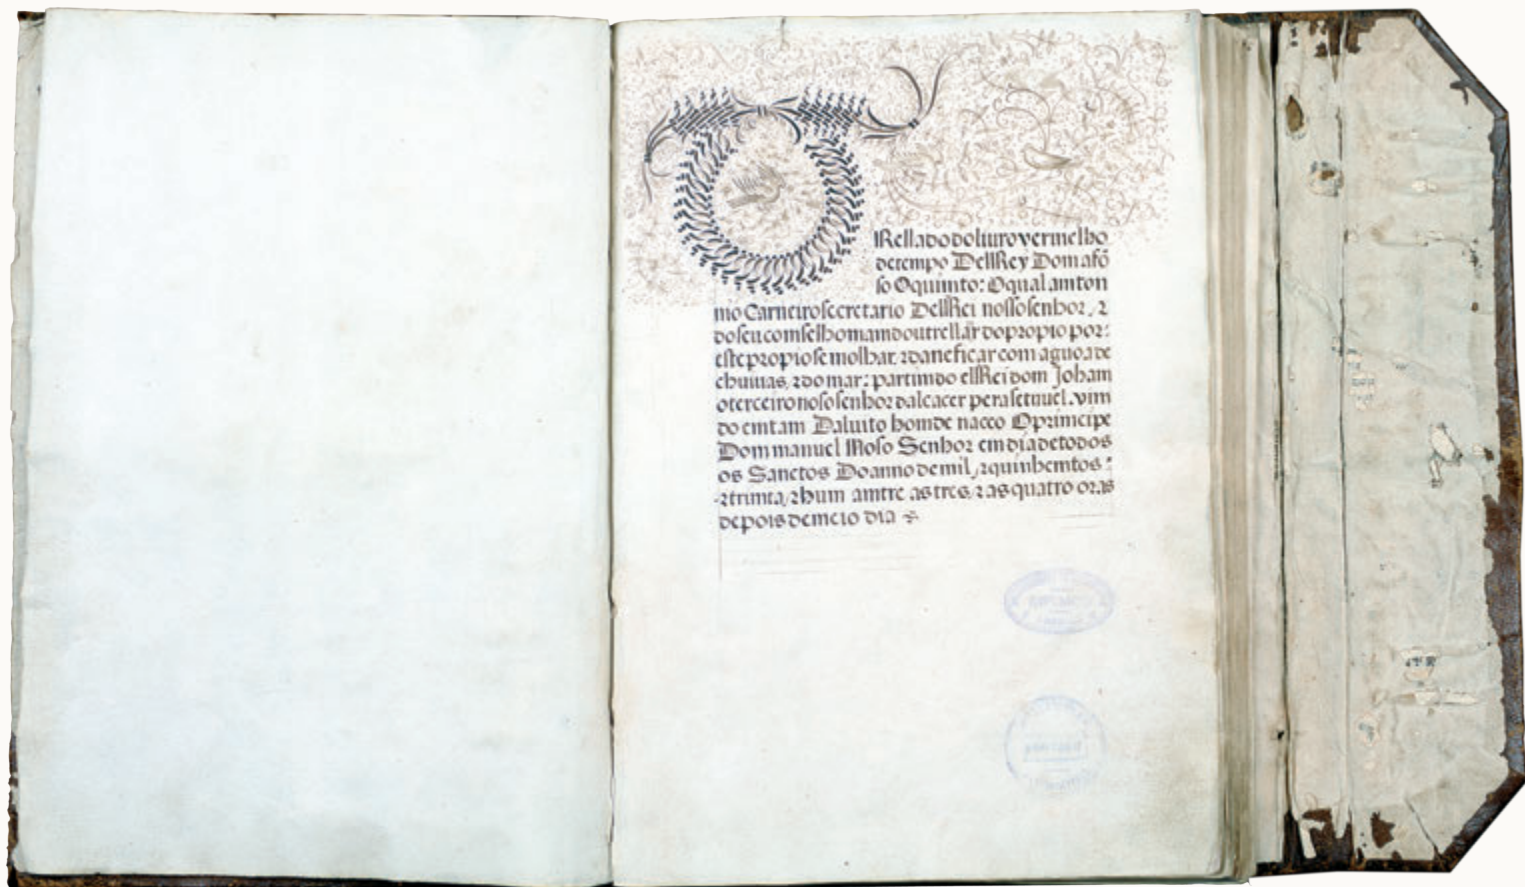 TRellado do liuro vermelho
de tempo DelRey Dom afõ
so O quinto: O qual amton
nio Carneiro secretario DellRei nosso senhor, ⁊
do seu comselho mamdou trelladar do propio por:
este propio se molhar. ⁊ daneficar com aguoa de
chuiuas, ⁊ do mar: partimdo ellRei dom Joham
o terceiro noso senhor dalcacer pera setuuel. vim
do emtam Daluito homde naceo O primcipe
Dom manuel Noso Senhor em dia de todos
os Sanctos Do anno de mil, ⁊ quinhemtos:
⁊ trimta, ⁊ hum amtre as tres, ⁊ as quatro oras
depois de meio dia